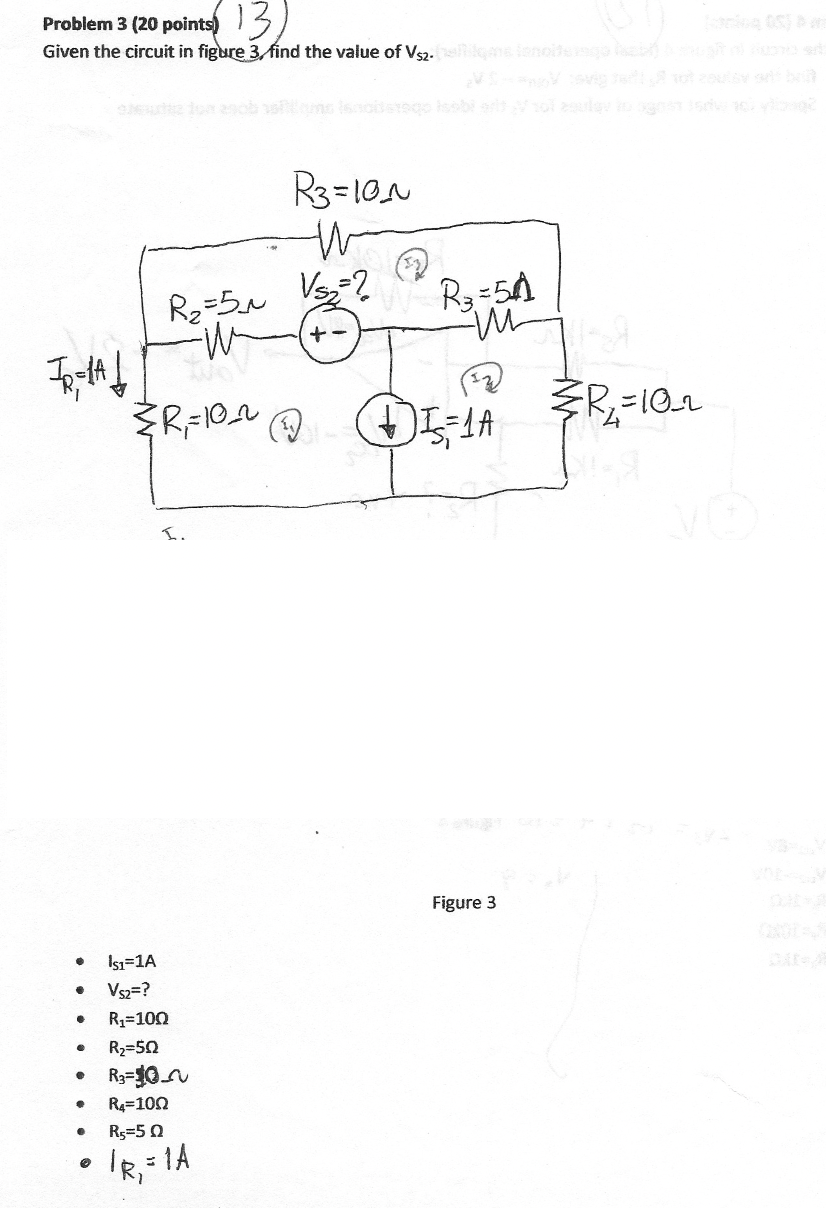 Problem 3 (20 points) 13
Given the circuit in figure 3, find the value of V_S2.
R3=10Ω
I2
V_S2=?
R2=5Ω
R3=5Ω
I_R1=1A
I2
R1=10Ω
I1
I_S1=1A
R4=10Ω
Figure 3
• I_S1=1A
• V_S2=?
• R1=10Ω
• R2=5Ω
• R3=10Ω
• R4=10Ω
• R5=5 Ω
• I_R1=1A